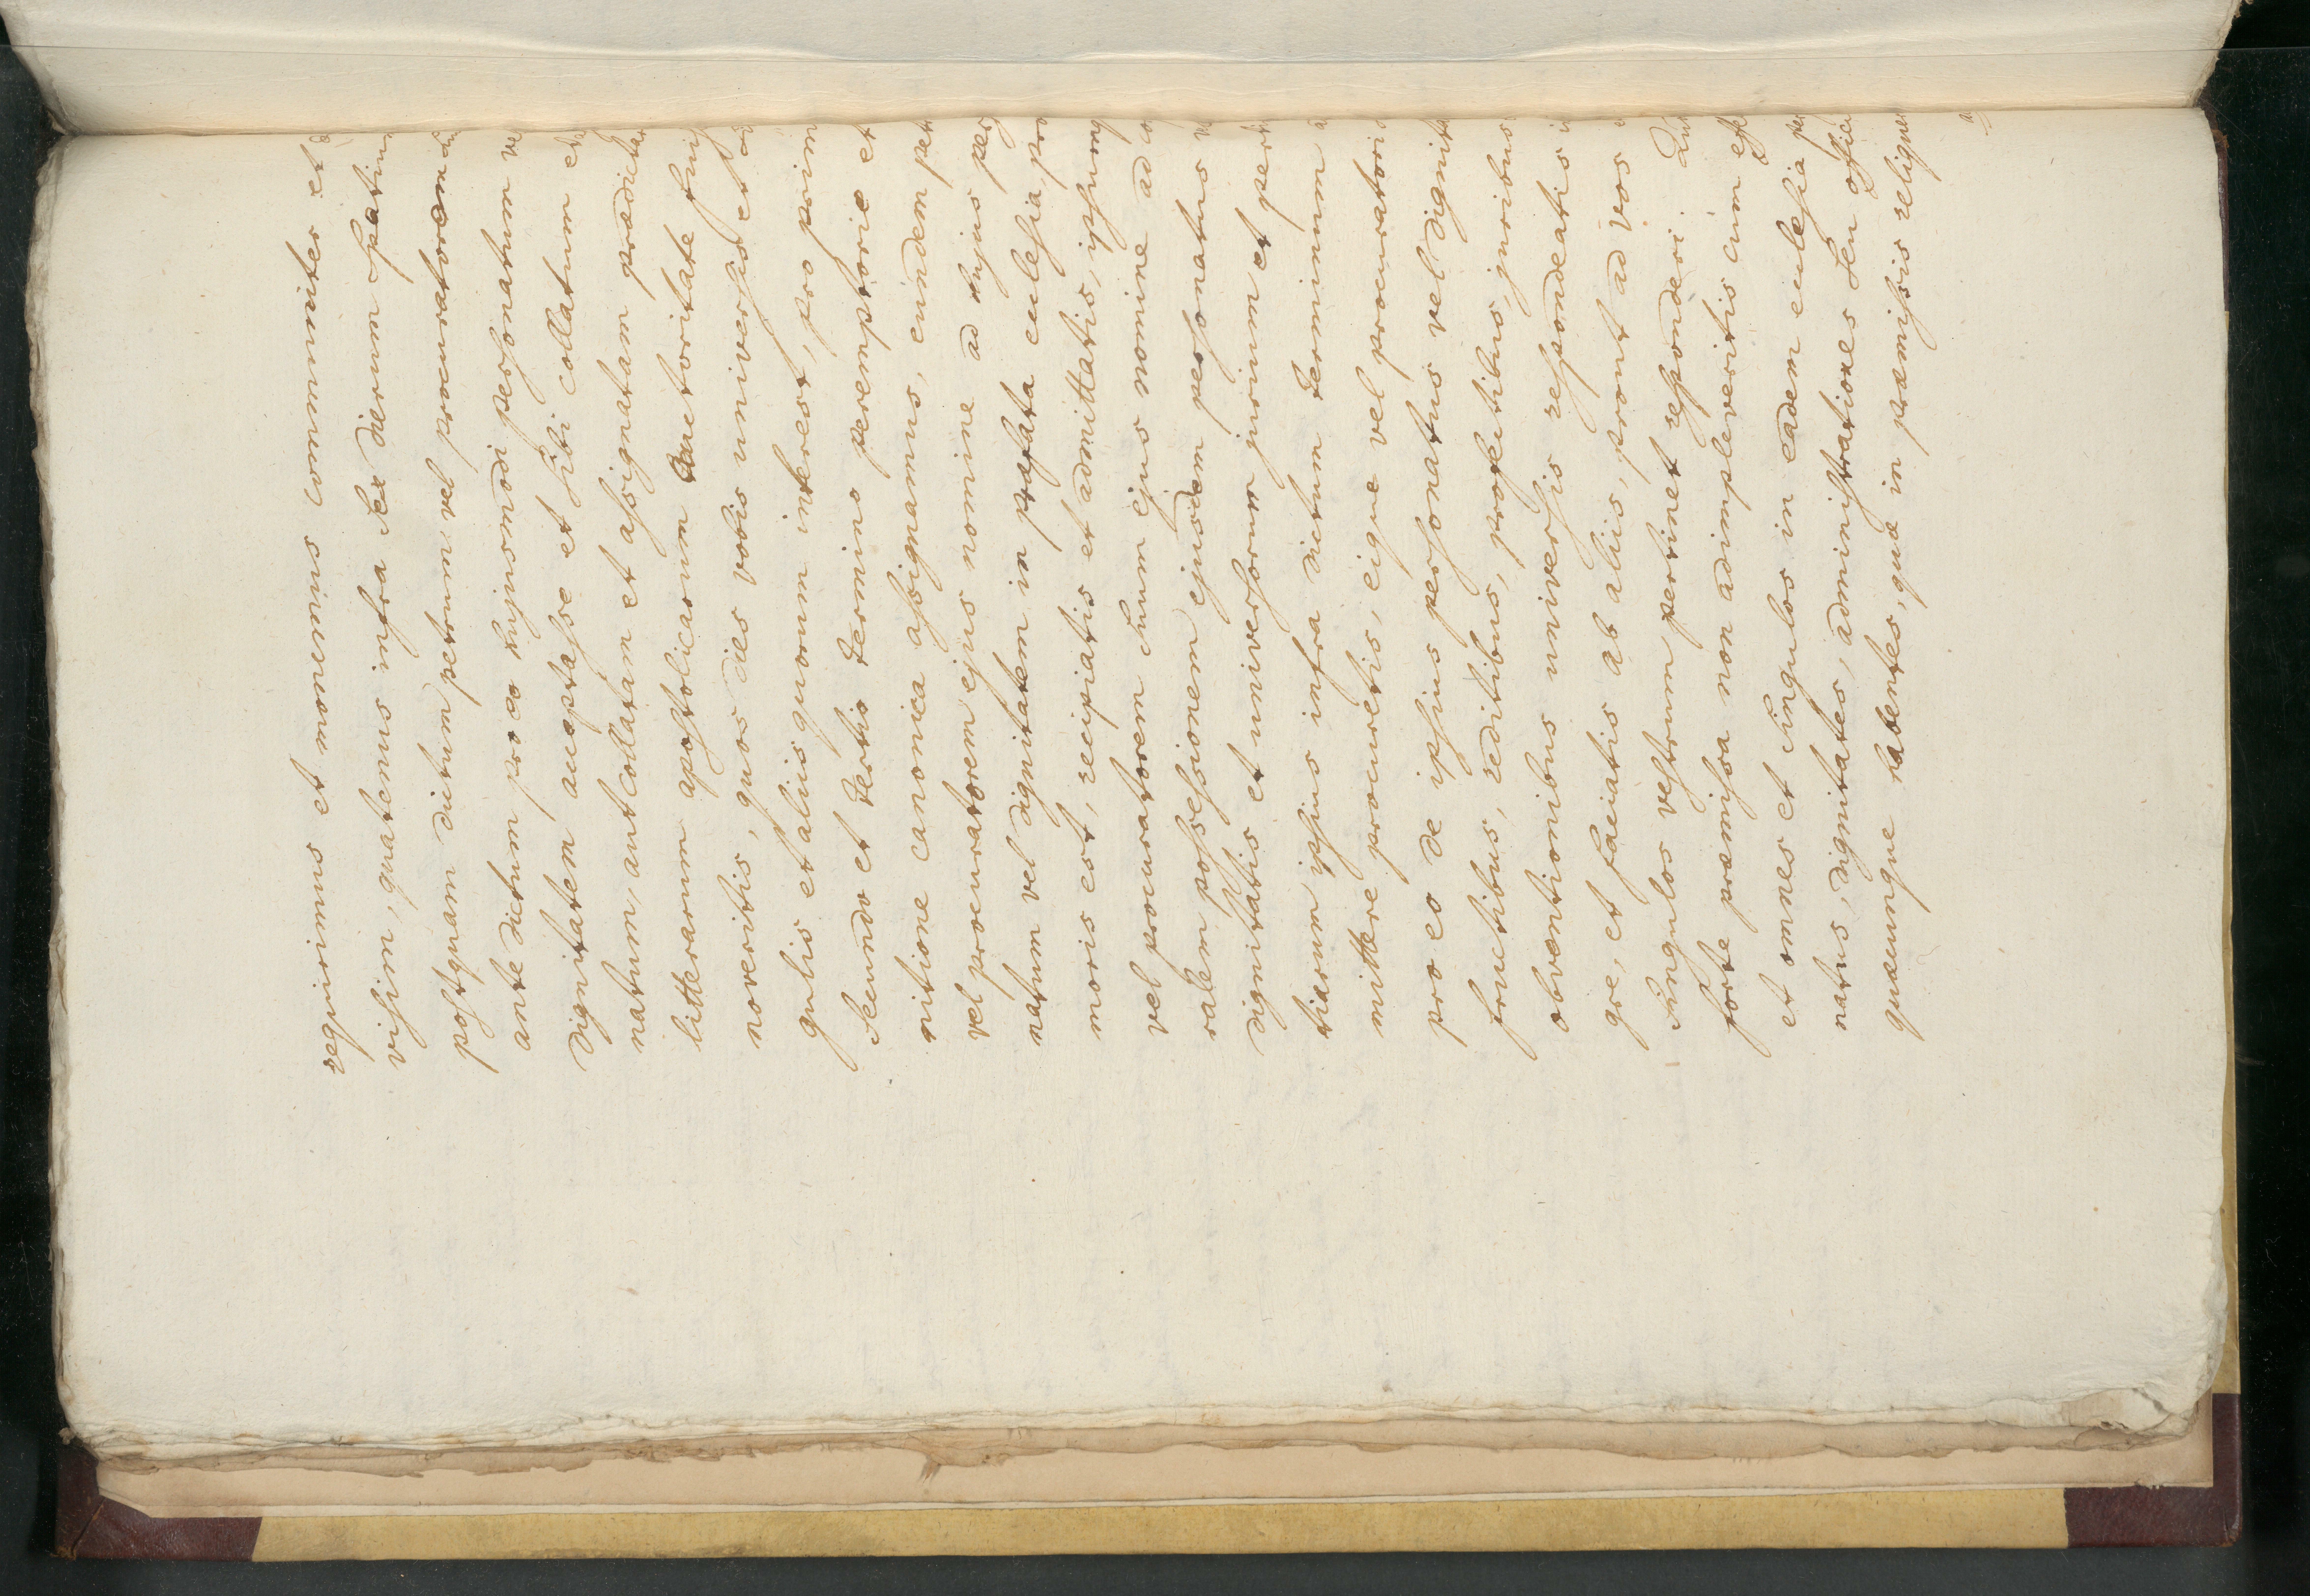 requirimus et monemus communiter et
vissim, quatenus infra sex dierum spatium
postquam dictum petrum vel procuratorem
ante dictum pro eo hujusmodi personatum
dignitatem acceptasse et sibi collatum
natum, aut collatam et assignatam
litterarum apostolicarum auctoritate
noveritis, quos dies vobis universis et
gulis et aliis quorum interest, pro
secundo et tertio termino peremptorio et
nitione canonica assignamus, eundem
vel procuratorem ejus nomine ad hujus
natum vel dignitatem in præfata eccelesia
moris est, recipiatis et admittatis, ipsum
vel procuratorem suum ejus nomine ad
ralem possessionem ejusdem personatus
dignitatis et universorum jurium et
tiarum ipsius infra dictum terminum
mittere procuretis, eique vel
pro eo de ipsius personatus vel
fructibus, reditibus, profectibus, juribus
obventionibus universis respondeatis
gre, et faciatis ab aliis, prout ad vos
singulos vestrum pertinet responderi.
forte præmissa non adimpleveritis cum
et omnes et singulos in eadem eclesia
natus, dignitates, administrationes seu
quæcunque habentes, qua in præmissis